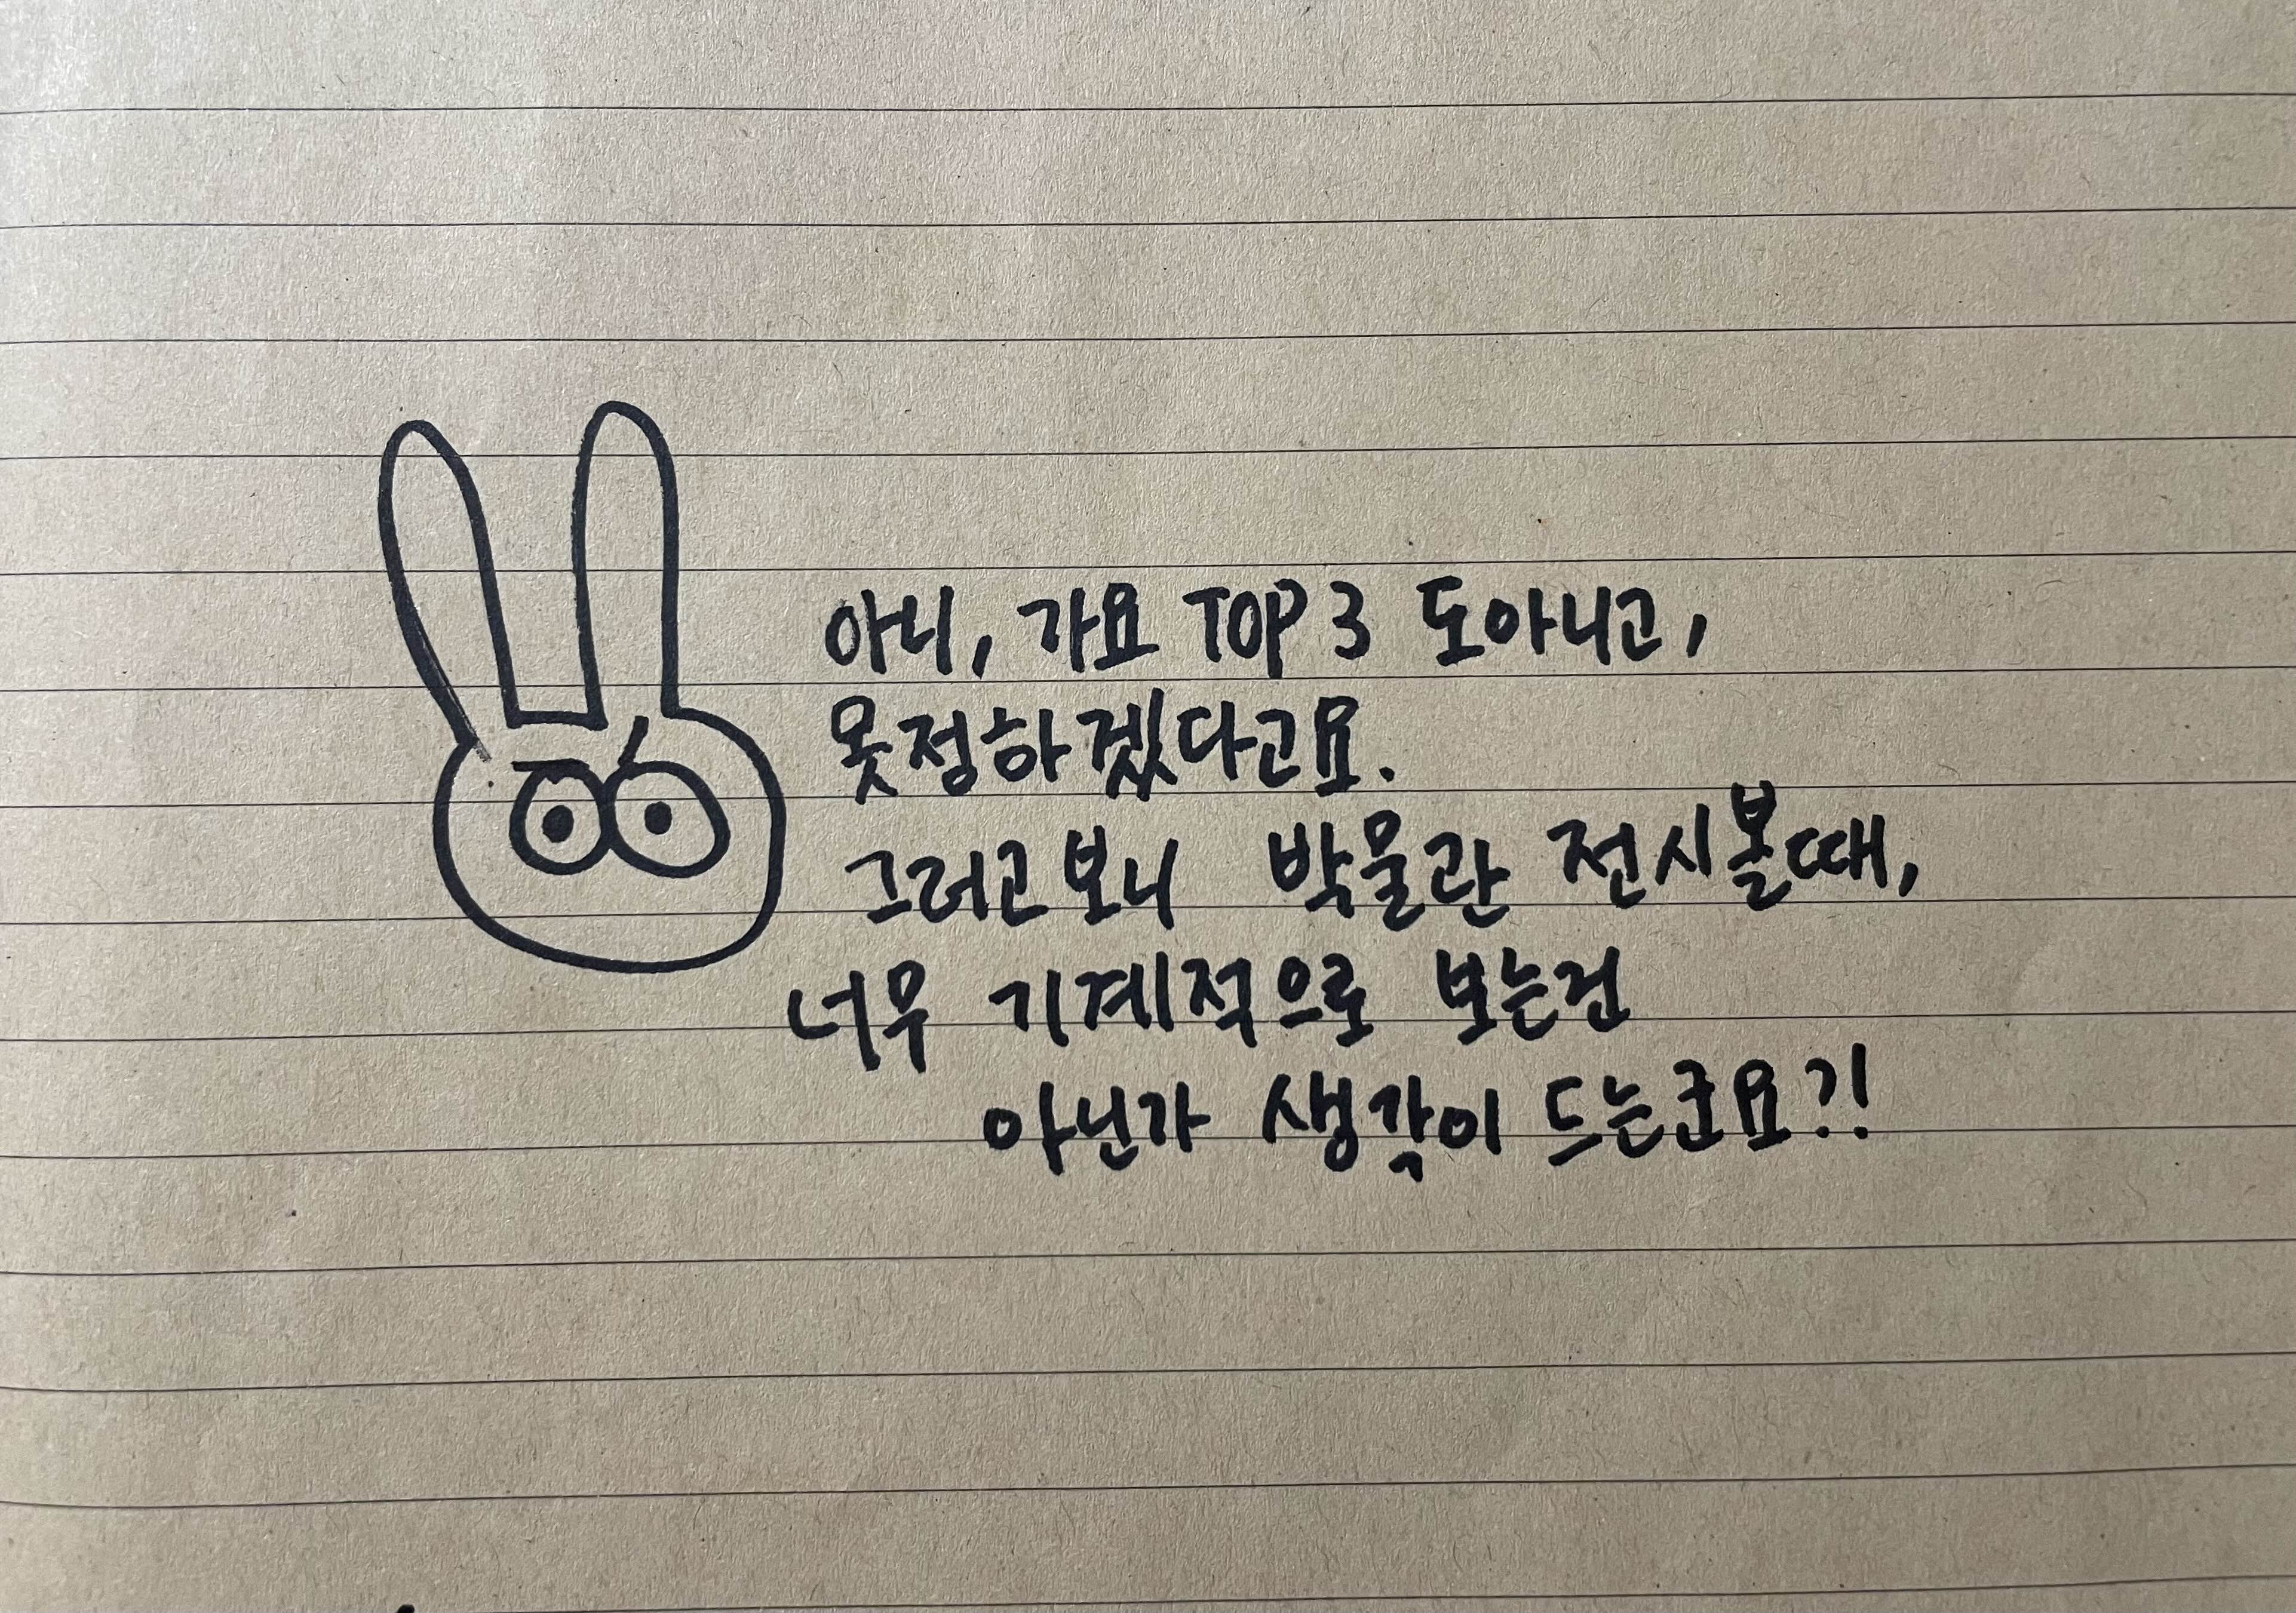 아니, 가요 TOP 3 도아니고,
못정하겠다고요.
그러고보니 박물관 전시볼때,
너무 기계적으로 보는건
아닌가 생각이 드는군요?!